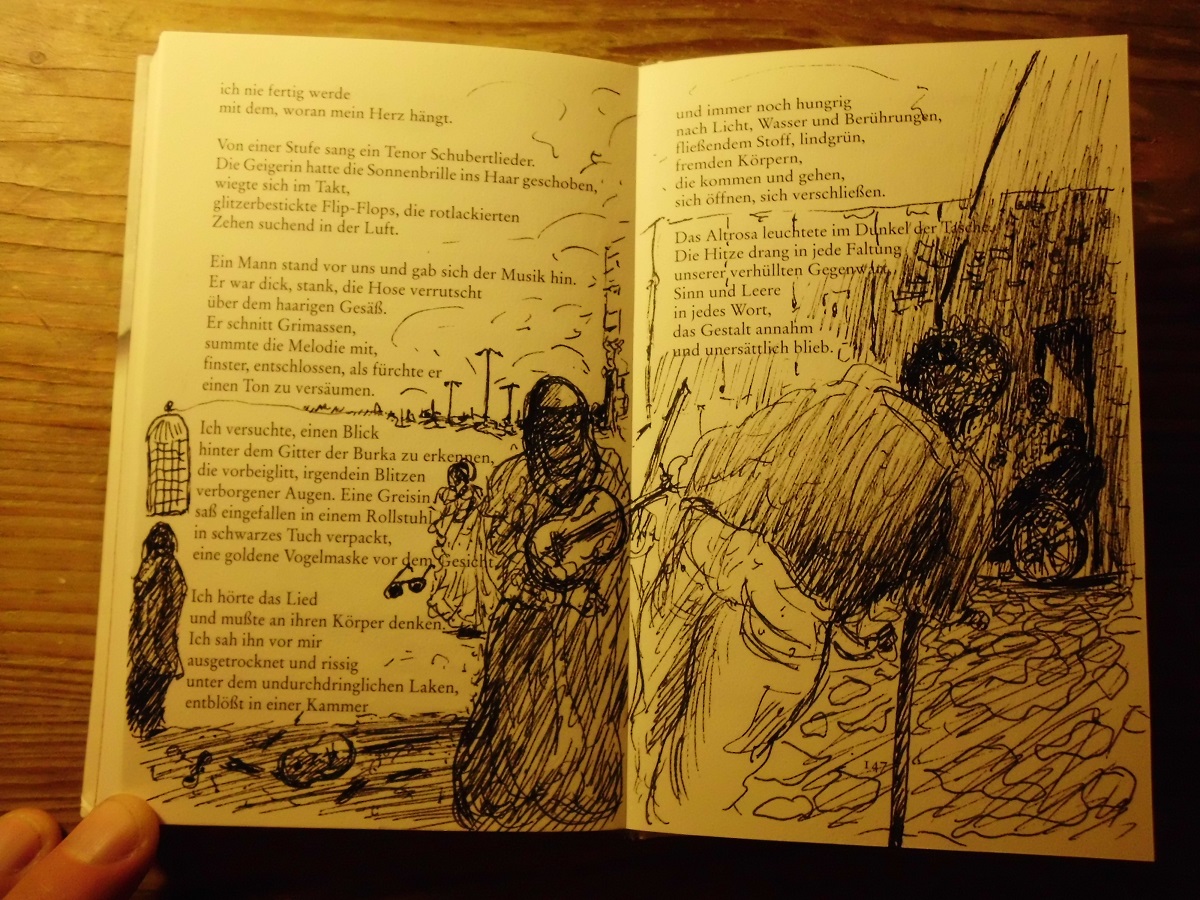 ich nie fertig werde
mit dem, woran mein Herz hängt.
Von einer Stufe sang ein Tenor Schubertlieder.
Die Geigerin hatte die Sonnenbrille ins Haar geschoben,
wiegte sich im Takt,
glitzerbestickte Flip-Flops, die rotlackierten
Zehen suchend in der Luft.
Ein Mann stand vor uns und gab sich der Musik hin.
Er war dick, stank, die Hose verrutscht
über dem haarigen Gesäß.
Er schnitt Grimassen,
summte die Melodie mit,
finster, entschlossen, als fürchte er
einen Ton zu versäumen.
Ich versuchte, einen Blick
hinter dem Gitter der Burka zu erkennen,
die vorbeiglitt, irgendein Blitzen
verborgener Augen. Eine Greisin
saß eingefallen in einem Rollstuhl
in schwarzes Tuch verpackt,
eine goldene Vogelmaske vor dem Gesicht.
Ich hörte das Lied
und mußte an ihren Körper denken.
Ich sah ihn vor mir
ausgetrocknet und rissig
unter dem undurchdringlichen Laken,
entblößt in einer Kammer
und immer noch hungrig
nach Licht, Wasser und Berührungen,
fließendem Stoff, lindgrün,
fremden Körpern,
die kommen und gehen,
sich öffnen, sich verschließen.
Das Altrosa leuchtete im Dunkel der Tasche.
Die Hitze drang in jede Faltung
unserer verhüllten Gegenwart,
Sinn und Leere
in jedes Wort,
das Gestalt annahm
und unersättlich blieb.
147